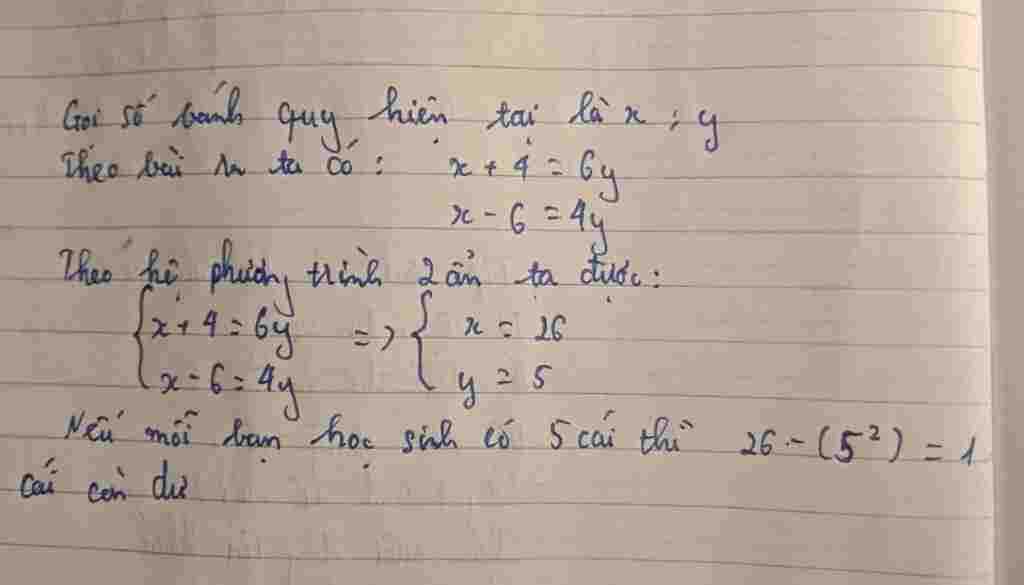 Gọi số bánh quy hiện tại là x ; y
Theo bài ra ta có : x + 4 = 6y
x - 6 = 4y
Theo hệ phương trình 2 ẩn ta được :
{ x + 4 = 6y => { x = 26
x - 6 = 4y y = 5
Nếu mỗi bạn học sinh có 5 cái thì 26 - (5²) = 1
cái còn dư